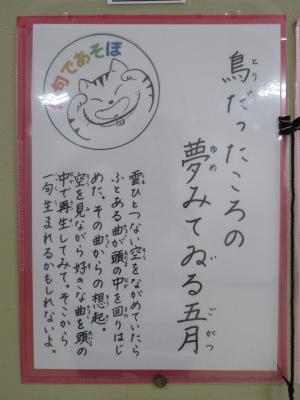 俳句であそぼ
鳥だったころの
夢みてゐる五月
とり
ゆめ
ごがつ
雲ひとつない空をながめていたら
ふとある曲が頭の中を回りはじ
めた。その曲からの想起。
空を見ながら好きな曲を頭の
中で再生してみて。そこから
一句生まれるかもしれないよ。